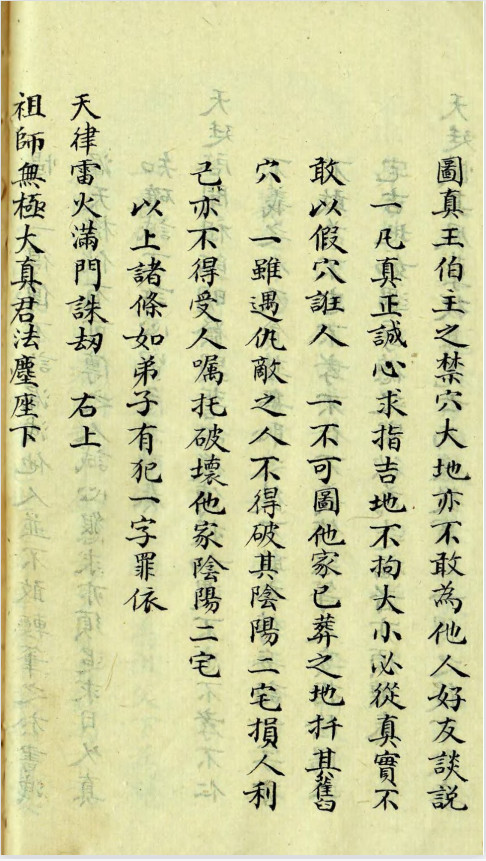 圖真王伯主之禁穴大地亦不敢為他人好友談説
一凡真正誠心求指吉地不拘大小必從真實不
敢以假穴誑人　一不可圖他家已葬之地扦其舊
穴　一雖遇仇敵之人不得破其陰陽二宅損人利
己亦不得受人嘱托破壞他家陰陽二宅
以上諸條如弟子有犯一字罪依
天律雷火滿門誅劫　右上
祖師無極大真君法塵座下